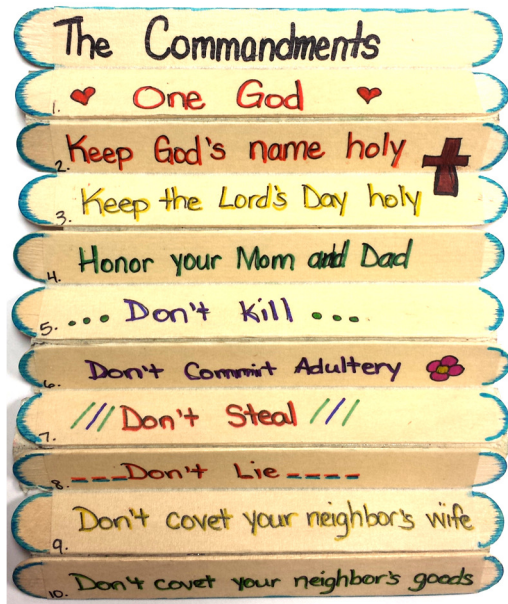 The Commandments
1. One God
2. Keep God's name holy
3. Keep the Lord's Day holy
4. Honor your Mom and Dad
5. ... Don't Kill ...
6. Don't Commit Adultery
7. /// Don't Steal ///
8. ---Don't Lie----
9. Don't covet your neighbor's wife
10. Don't covet your neighbor's goods